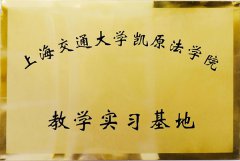 上海交通大学凯原法学院
教学实习基地